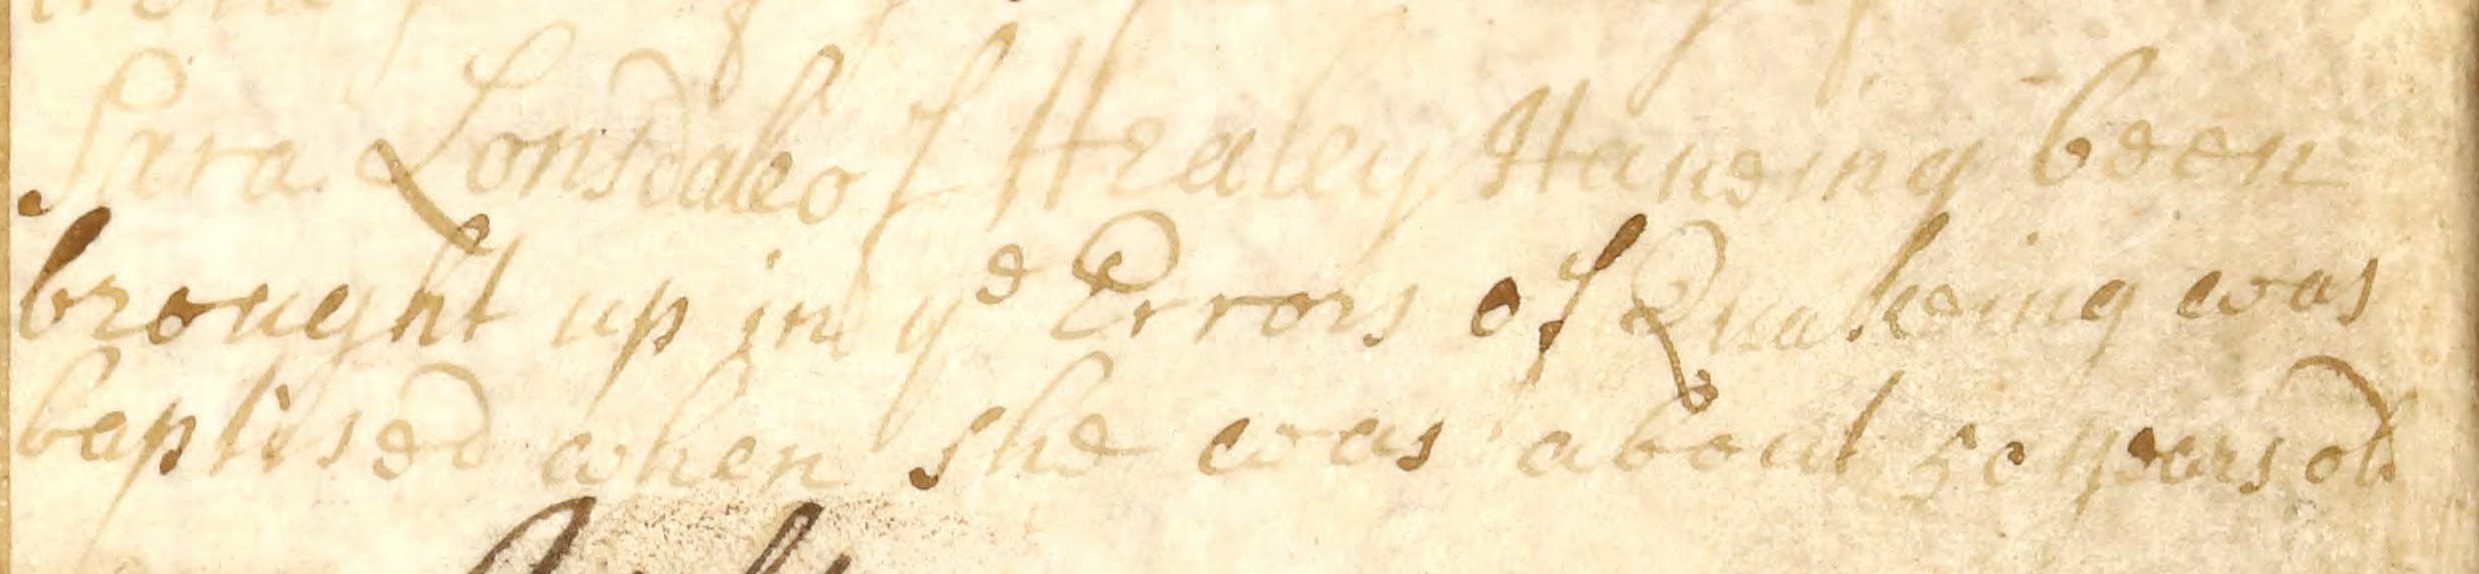 Sara Lonsdale of Healey Haueing been
brought up in yᵉ Errors of Quakeing was
baptised when she was about 50 years old